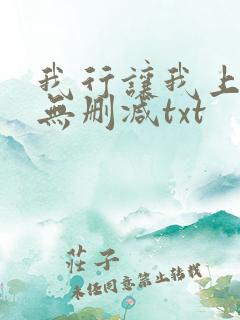 我行讓我上
無刪减txt
莊子
未经同意禁止转载